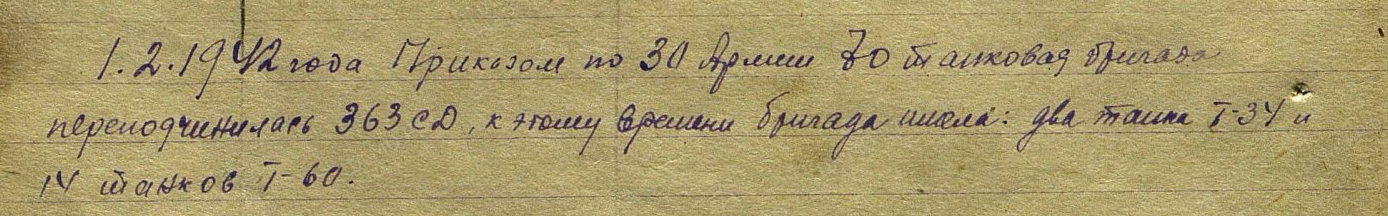 1.2.1942 года Приказом по 30 Армии 70 танковая бригада
переподчинилась 363 СД, к этому времени бригада имела: два танка Т-34 и
14 танков Т-60.